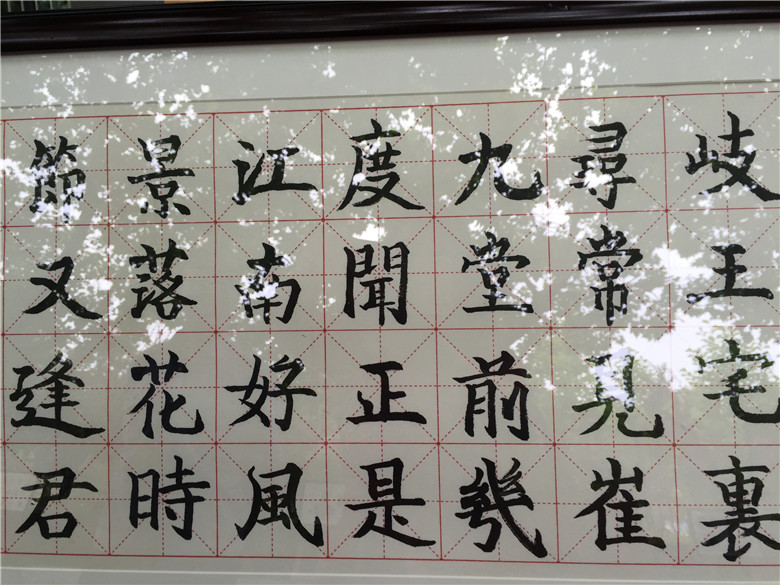 岐王宅裏
尋常見崔
九堂前幾
度聞正是
江南好風
景落花時
節又逢君